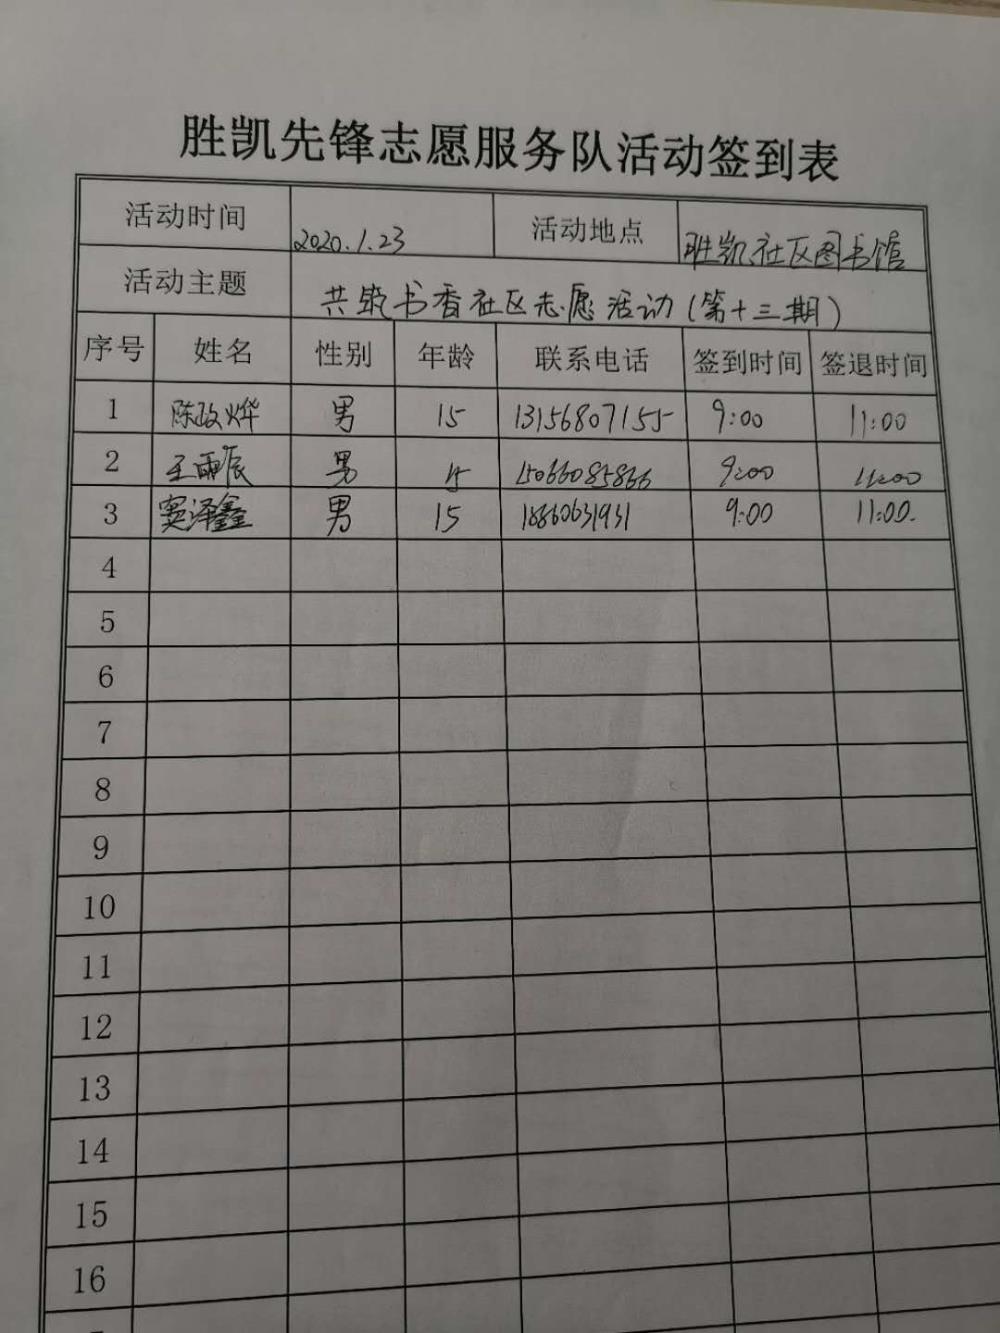 胜凯先锋志愿服务队活动签到表
活动时间 2020.1.23 活动地点 胜凯社区图书馆
活动主题 共筑书香社区志愿活动(第十三期)
序号 姓名 性别 年龄 联系电话 签到时间 签退时间
1 陈政烨 男 15 13156807155 9:00 11:00
2 王雨辰 男 15066085866 9:00 11:00
3 窦泽鑫 男 15 18860631931 9:00 11:00.
4
5
6
7
8
9
10
11
12
13
14
15
16